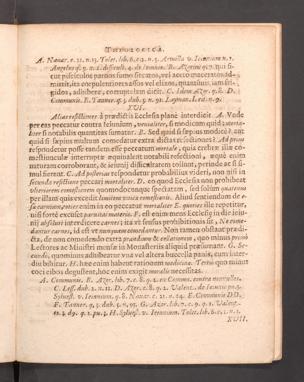 THEOLOGICA.
A. Navar. c. 21. n. 13. Tolet. lib. 6. c. 3. n. 5. Armilla v. Ieiunium n. 1.
Angelus q. 9. n.  B. Azorius
cut pisciculos partim fumo siccatos, vel aceto maceratos ad-
mittit, ita  assos vel elixos, quamuis iam fri-
gidos, adhibere, corruptelam dicit. C. Idem Azor. q. 8. D.
Communis. E. Tanner. q. 3. dub. 5. n. 92. Layman. l. cit. n. 9.
XVI.
Alias refectiones à prædictis Ecclesia planè interdicit. A. Vnde
per eas peccatur contra Ieiunium, venialiter, si modicum quid
sumatur: si notabilis quantitas sumatur. B. Sed quid si sæpius modicè, aut
quid si sæpius multum comedatur extra dictas refectiones? Ad prius
respondetur posse tandem esse peccatum mortale, quia crebræ illæ co-
mestiunculæ interruptæ æquiualent notabili refectioni, æquè enim
naturam corroborant, & ieiunij difficultatem tollunt, perinde ac si si-
mul fierent. C. Ad posterius respondetur probabilius videri, non nisi in
secunda refectione peccari mortaliter. D. eo quod Ecclesia non prohibeat
vlteriorem comestionem quomodocunque spectatam, sed solùm quatenus
per illam quis excedit Ieiunium vnicæ comestionis. Aliud sentiendum de
 enim in eo peccatur mortaliter E. quoties illæ repetitur,
nisi fortè excuset paruitas materiæ. F. est enim mens Ecclesiæ in die ieiu-
nij absolutè interdicere carnes: ita vt sensus prohibitionis sit, Ne come-
dantur carnes, id est vt nunquam comedantur. Non tamen obstant prædi-
cta, de non comedendo extra prandium & collationem, quo minus primò
Lectores ac Ministri mensæ in Monasterijs aliquid præsumant. G. Se-
cundò, quominus adhibeatur vna vel altera buccella panis, cum inter-
diu bibitur. H. hæc enim habent rationem medicinæ. Tertiò quo minus
coci cibos degustent, hoc enim exigit moralis necessitas.
A. Communis. B. Azor. lib. 7. c. 8. q. 2. ex Commun. contra nonnullos.
C. Less. dub. 2. n. 11. D. Azor. c. 8. q. 2. Valent. de Ieiunio pu. 3.
Syluest. v. Ieiunium. q. 8. Nauar. c. 21. n. 14. E. Communis DD.
F. Tanner. q. 3. dub. 5. n. 95. G. Azor. lib. 7. c. 9. q. 2. Valent.
to. 3. d. 9. q. 2. pu. 3. H. Syluest. v. Ieiunium. Tolet. lib. 6. c. 2. n. 2.
XVII.